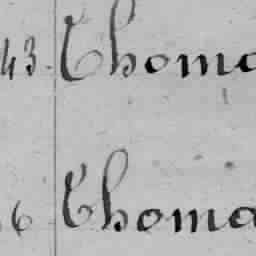 43. Thoma
6 Thoma